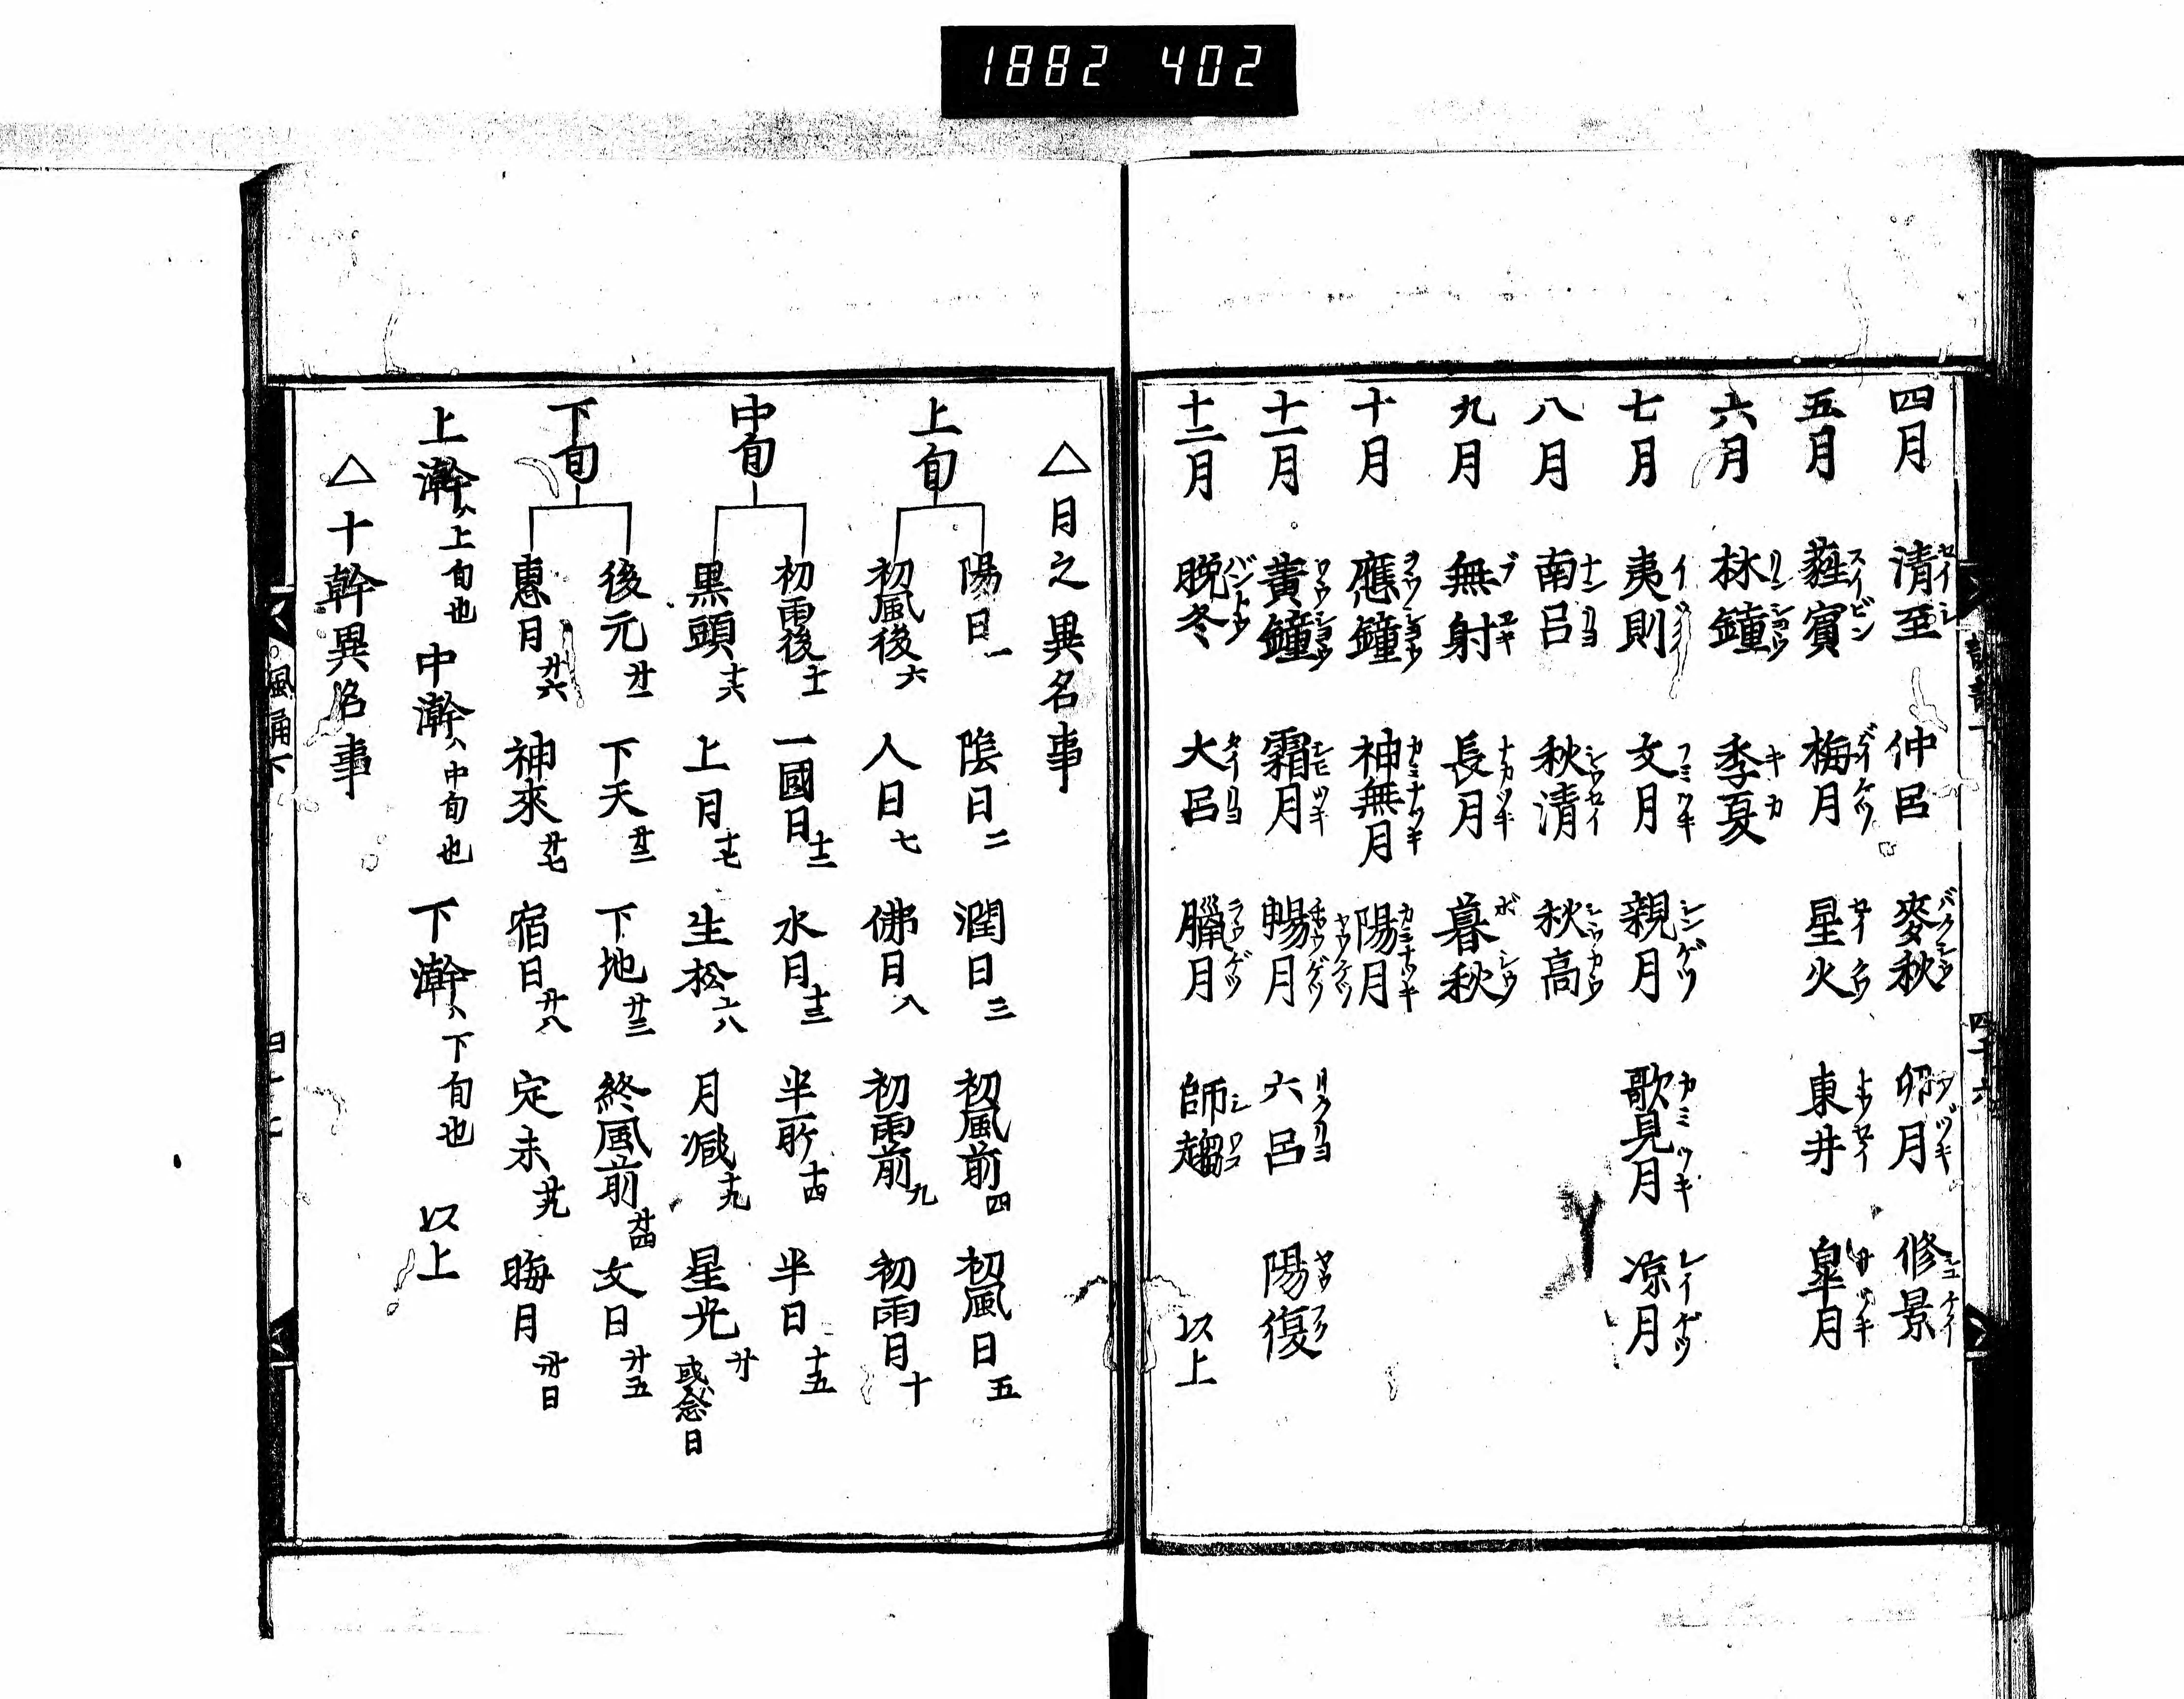 1882 402
四月 清至 仲呂 麥秋 卯月 修景
五月 蕤賓 梅月 星火 東井 皐月
六月 林鐘 季夏
七月 夷則 文月 親月 歌見月 凉月
八月 南呂 秋清 秋高
九月 無射 長月 暮秋
十月 應鐘 神無月 陽月
十一月 黄鐘 霜月 暢月 六呂 陽復
十二月 晩冬 大呂 臘月 師趨 以上
△月之異名事
上旬
陽日一 陰日二 潤日三 初風前四 初風日五
初風後六 人日七 佛日八 初雨前九 初雨日十
中旬
初雨後十一 一國日十二 水月十三 半所十四 半日十五
黒頭十六 上月十七 生松十八 月減十九 星光廿 或念日
下旬
後元廿一 下天廿二 下地廿三 終風前廿四 文日廿五
惠月廿六 神來廿七 宿日廿八 定未廿九 晦月卅日
上澣ハ上旬也 中澣ハ中旬也 下澣ハ下旬也 以上
△十幹異名事